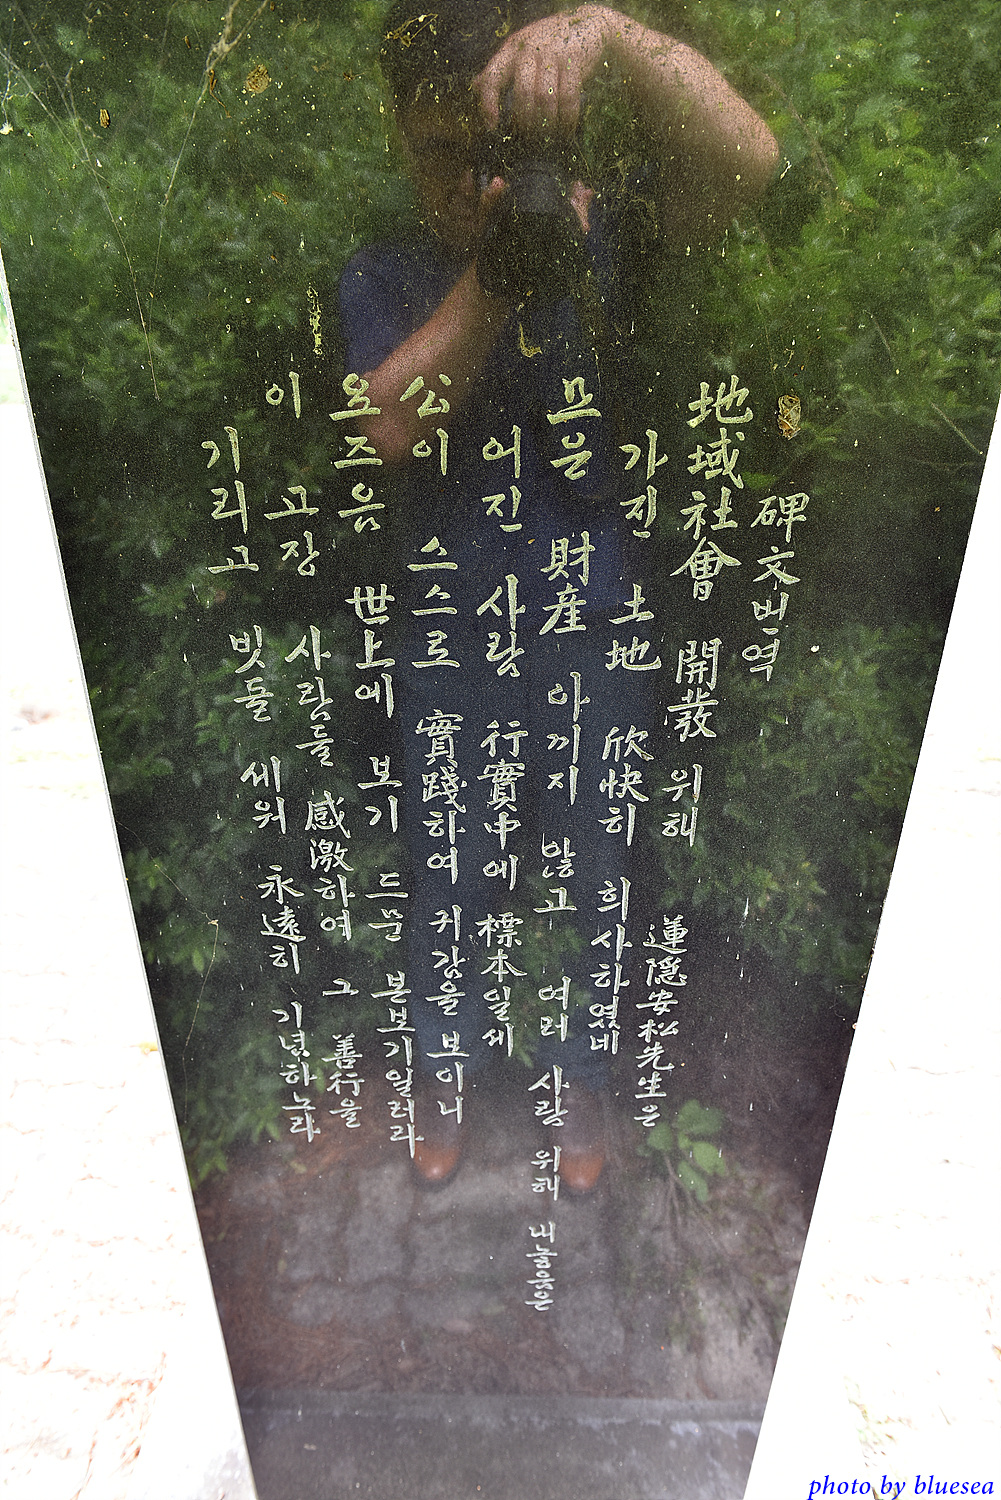 碑文번역
地域社會 開發 위해 蓮隱安松先生은
가진 土地 欣快히 희사하였네
모은 財産 아끼지 않고 여러 사람 위해 내놓음은
어진 사람 行實中에 標本일세
公이 스스로 實踐하여 귀감을 보이니
요즈음 世上에 보기 드문 본보기일러라
이 고장 사람들 感激하여 그 善行을
기리고 빗돌 세워 永遠히 기념하노라
photo by bluesea